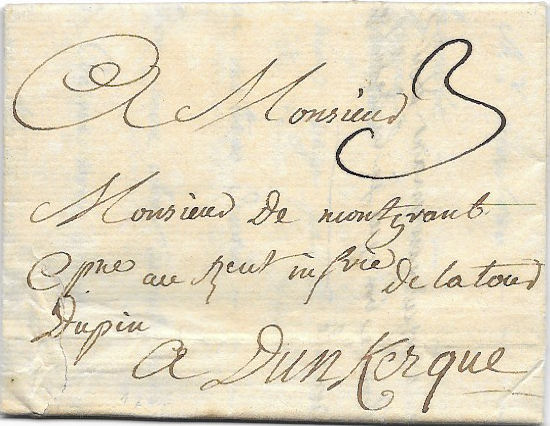 A Monsieur 3
Monsieur de montgrant
Cpne au Regut infrie de la tour
Dupin
a Dunkerque